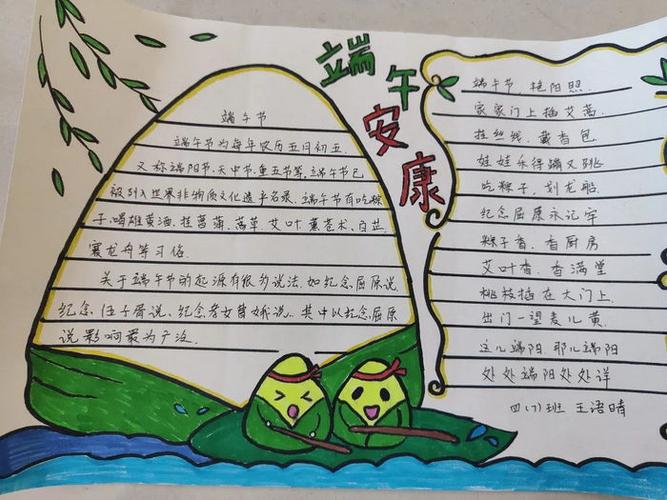 端午安康
端午节
端午节为每年农历五月初五
又称端阳节、天中节、重五节等,端午节已
被列入世界非物质文化遗产名录、端午节有吃粽
子、喝雄黄酒、挂菖蒲、蒿草、艾叶、薰苍术、白芷
赛龙舟等习俗
关于端午节的起源有很多说法、如纪念屈原说
纪念伍子胥说、纪念孝女曹娥说、其中以纪念屈原
说影响最为广泛
端午节 艳阳照.
家家门上插艾蒿.
挂丝线、戴香包
娃娃乐得蹦又跳
吃粽子、划龙船
纪念屈原永记牢
粽子香、香厨房
艾叶香、香满堂
桃枝插在大门上.
出门一望麦儿黄.
这儿端阳 那儿端阳
处处端阳处处详
四(7)班 王语晴